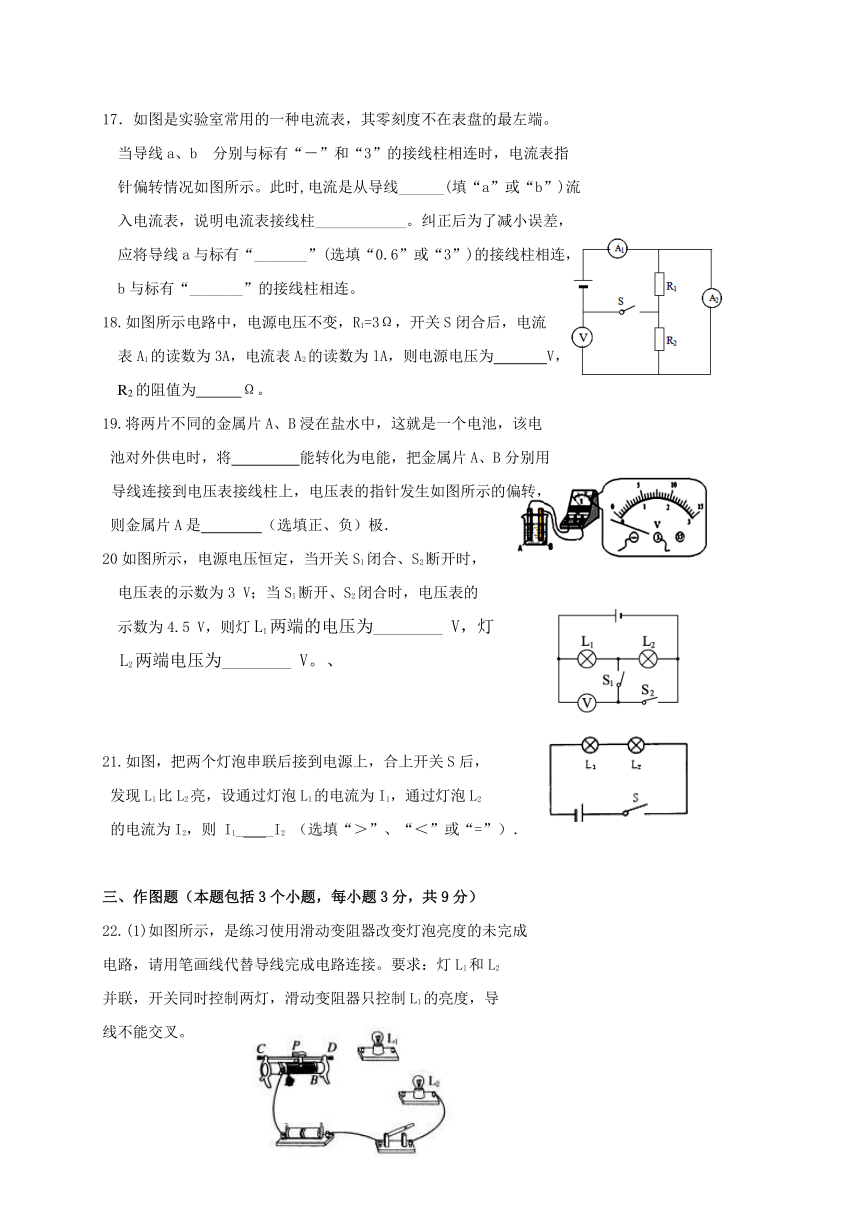 17. 如图是实验室常用的一种电流表，其零刻度不在表盘的最左端。
当导线 a、b 分别与标有“－”和“3”的接线柱相连时，电流表指
针偏转情况如图所示。此时,电流是从导线______(填“a”或“b”)流
入电流表，说明电流表接线柱____________。纠正后为了减小误差，
应将导线 a 与标有“_______”(选填“0.6”或“3”)的接线柱相连，
b 与标有“_______”的接线柱相连。
A1
R1
A2
S
V
R2
18.如图所示电路中，电源电压不变，R1=3Ω，开关 S 闭合后，电流
表 A1的读数为 3A，电流表 A2的读数为 lA，则电源电压为_______V，
R2 的阻值为______Ω。
19.将两片不同的金属片 A、B 浸在盐水中，这就是一个电池，该电
池对外供电时，将_________能转化为电能，把金属片 A、B 分别用
导线连接到电压表接线柱上，电压表的指针发生如图所示的偏转，
则金属片 A 是________（选填正、负）极．
A B
0 5 10 15
0 1 2 3
V
− 3 15
20 如图所示，电源电压恒定，当开关 S1闭合、S2断开时，
电压表的示数为 3 V；当 S1断开、S2闭合时，电压表的
示数为 4.5 V，则灯 L1 两端的电压为________ V，灯
L2 两端电压为________ V。、
L1 L2
S1
S2
V
21.如图，把两个灯泡串联后接到电源上，合上开关 S 后，
发现 L1比 L2亮，设通过灯泡 L1的电流为 I1，通过灯泡 L2
的电流为 I2，则 I1_____I2 （选填“＞”、“＜”或“=”）．
L1 L2
S
三、作图题（本题包括 3 个小题，每小题 3 分，共 9 分）
22.(1)如图所示，是练习使用滑动变阻器改变灯泡亮度的未完成
电路，请用笔画线代替导线完成电路连接。要求：灯 L1 和 L2
并联，开关同时控制两灯，滑动变阻器只控制 L1 的亮度，导
线不能交叉。
C P D
B
L1
L2